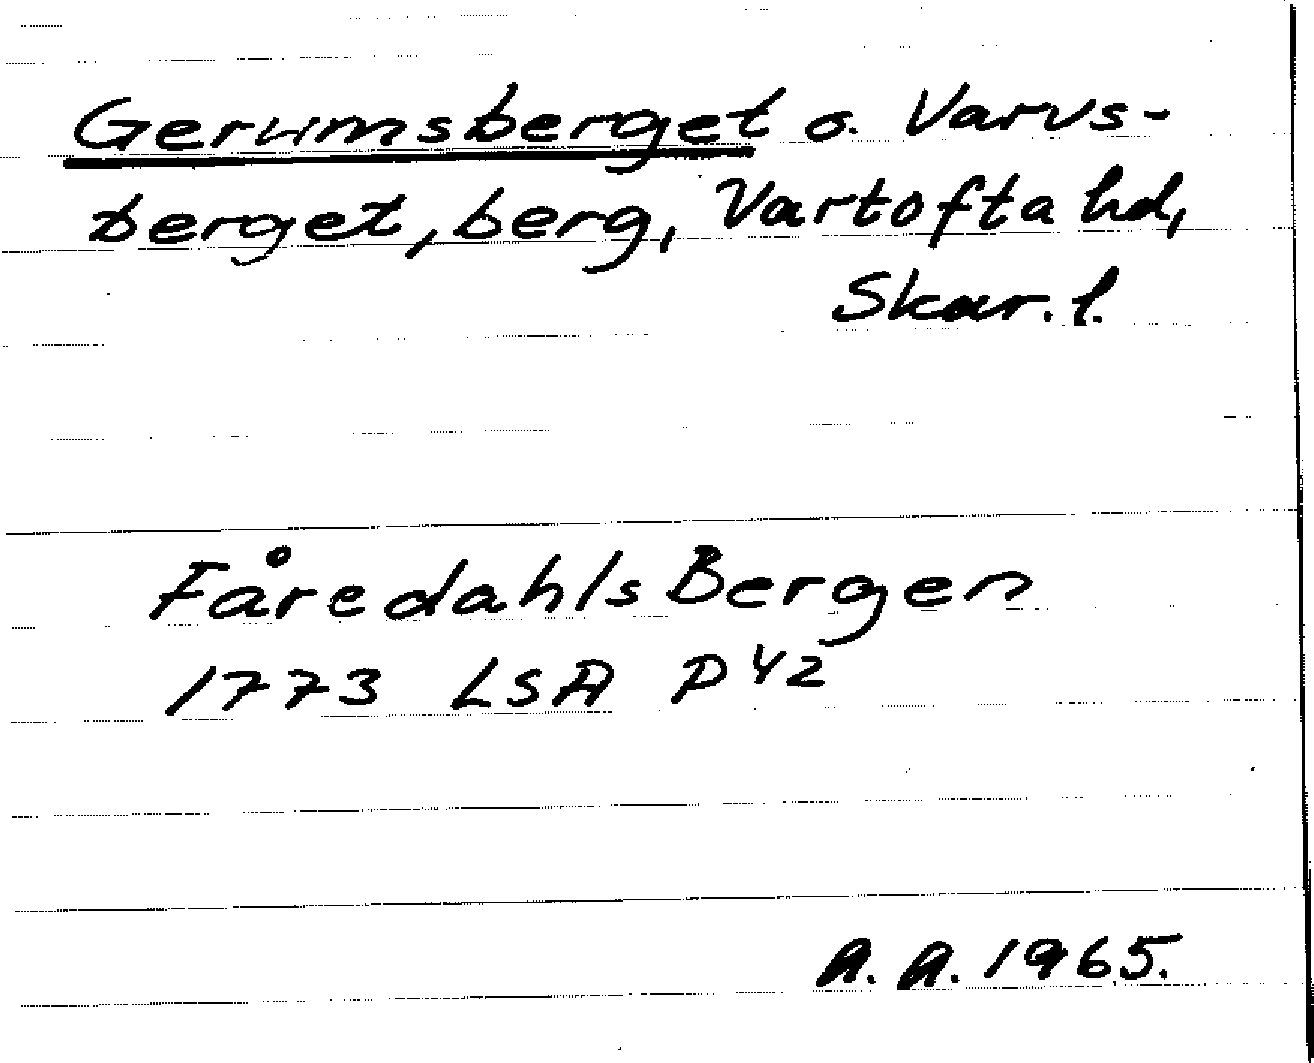 Gerumsberget o. Varvs-
berget, berg, Vartofta hd,
Skar. l.
Fåredahls Bergen
1773 LSA P42
A. A. 1965.